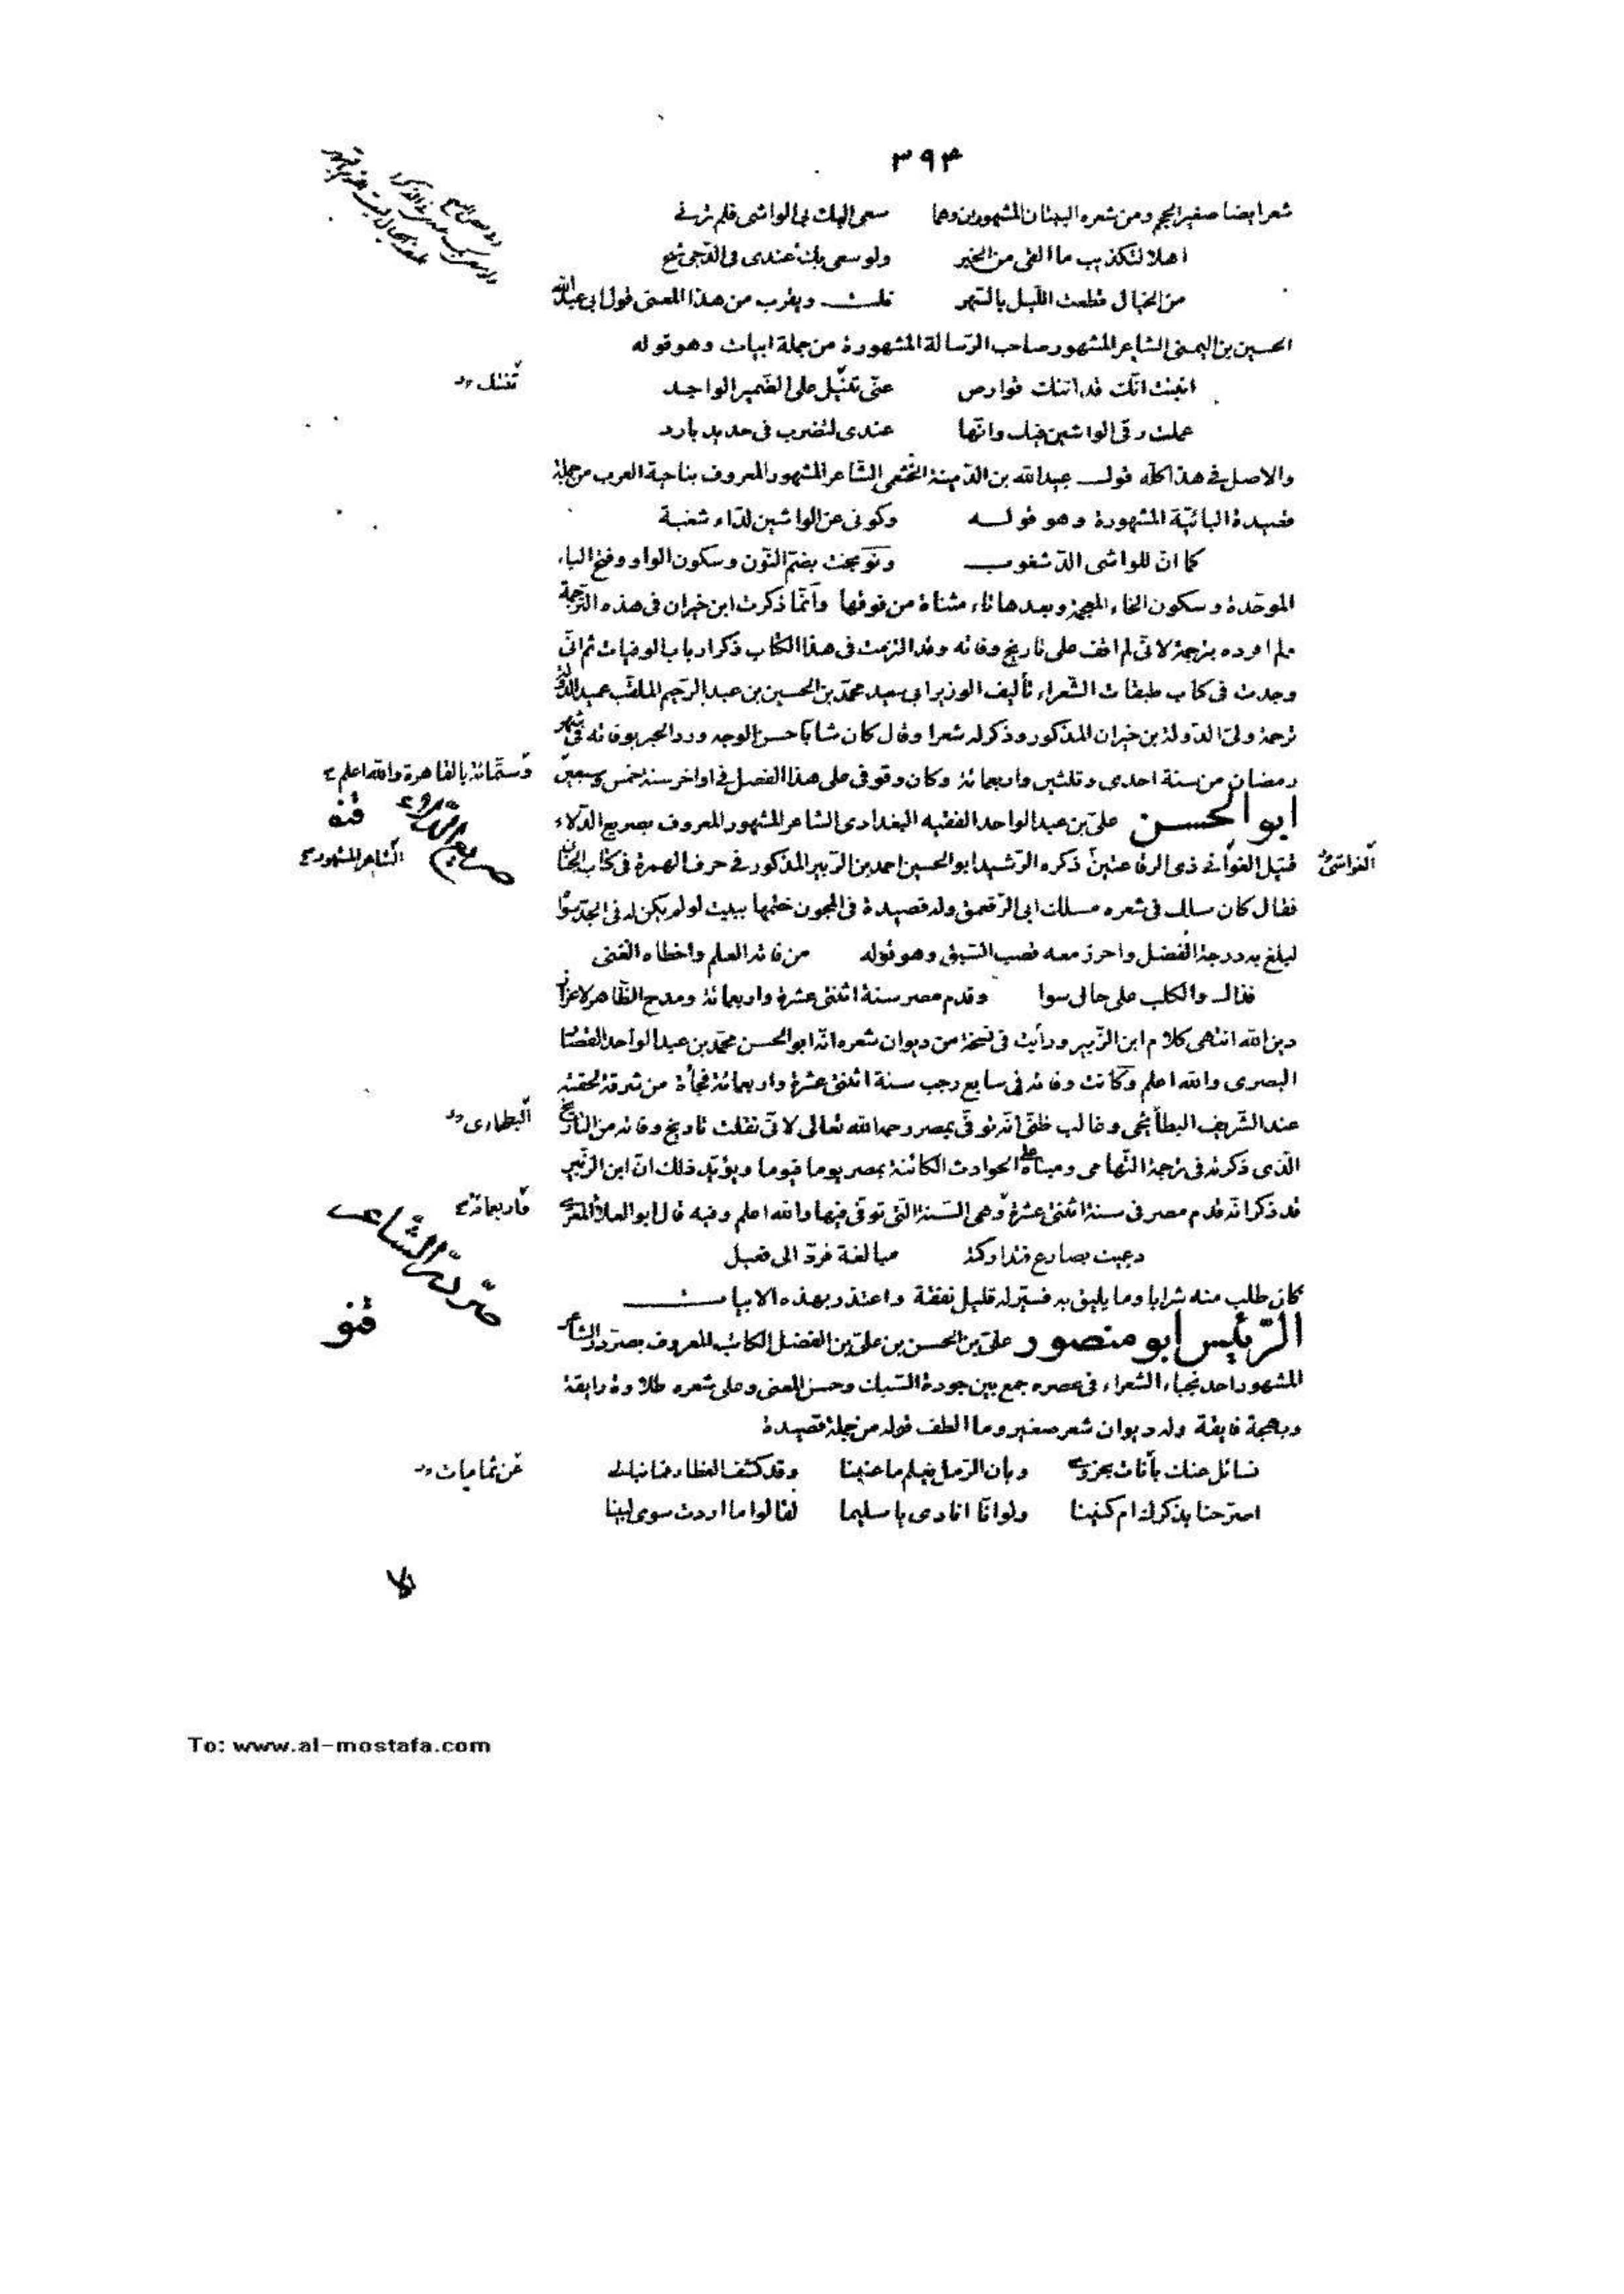 ٣٩٣
شعرا ايضا صغير الحجم ومن شعره البيتان المشهوران وهما سعى اليك بى الواشى فلم ترنى
اهلا لتكذيب ما القى من الخبر ولو سعى بك عندى فى الدّجى
من الخيال قطعت اللّيل بالسّهر قلت ويقرب من هذا المعنى قول ابى عبد الله
الحسين بن اليمنى الشاعر المشهور صاحب الرّسالة المشهورة من جملة ابيات وهو قوله
انّك قد اتتك قوارص عنّى على الضّمير الواجد
عملت رقى الواشين فيك وانّها عندى لتضرب فى حديد بارد
والاصل فى هذا كلّه قول عبد الله بن الدّمينة الخثعمى الشّاعر المشهور المعروف بناحية العرب من جملة
قصيدة البائيّة المشهورة وهو قوله وكونى عن الواشين لدّاء شغبة
كما انّ للواشى الدّ شغوب ونوبخت بضمّ النّون وسكون الواو وفتح الباء
الموحّدة وسكون الخاء المعجمة وبعدها تاء مثناة من فوقها وانّما ذكرت ابن خيران فى هذه التّرجمة
ولم افرده بترجمة لانّى لم اقف على تاريخ وفاته وقد التزمت فى هذا الكتاب ذكر ارباب الوفيات ثم انّى
وجدت فى كتاب طبقات الشّعراء تأليف الوزير ابى سعيد محمّد بن الحسين بن عبد الرّحيم الملقّب عميد الدّولة
ترجمة ولىّ الدّولة بن خيران المذكور وذكر له شعرا وقال كان شابّا حسن الوجه ورد الخبر بوفاته فى شهر
رمضان من سنة احدى وثلثين واربعمائة وكان وقوفى على هذا الفصل فى اواخر سنة خمس وسبعين
وستّمائة بالقاهرة والله اعلم
ابو الحسن علىّ بن عبد الواحد الفقيه البغدادى الشاعر المشهور المعروف بصريع الدّلاء
الشّاعر المشهور
قتيل الغوانى ذى الرقاعتين ذكره الرّشيد ابو الحسين احمد بن الزّبير المذكور فى حرف الهمزة فى كتاب الجنان
الغواشى
فقال كان سلك فى شعره مسلك ابى الرّقعمق وله قصيدة فى المجون ختمها ببيت لو لم يكن له فى الجدّ سواه
ليبلغ به درجة الفضل واحرز معه قصب السّبق وهو قوله من فاته العلم واخطاه الغنى
فذاك والكلب على حال سوا وقدم مصر سنة اثنتى عشرة واربعمائة ومدح الظّاهر لاعزاز
دين الله انتهى كلام ابن الزّبير ورأيت فى نسخة من ديوان شعره انّه ابو الحسن محمّد بن عبد الواحد القصّار
البصرى والله اعلم وكانت وفاته فى سابع رجب سنة اثنتى عشرة واربعمائة فجأة من شرقة لحقته
عند الشّريف البطائحى وغالب ظنّى انّه توفّى بمصر رحمه الله تعالى لانّى نقلت تاريخ وفاته من التاريخ
الّذى ذكرته فى ترجمة التّهامى ومبناه على الحوادث الكائنة بمصر يوما فيوما ويؤيّد ذلك انّ ابن الزّبير
قد ذكر انّه قدم مصر فى سنة اثنتى عشرة وهى السّنة الّتى توفّى فيها والله اعلم وفيه قال ابو العلاء المعرّى
واربعمائة
دعيت بصارع فتداركته مبالغة فردّ الى فعيل
كان طلب منه شرابا وما يليق به فسيّر له قليل نفقة واعتذر بهذه الابيات
صرّ درّ الشّاعر
الرّئيس ابو منصور علىّ بن الحسن بن علىّ بن الفضل الكاتب المعروف بصرّ درّ الشّاعر
المشهور احد نجباء الشّعراء فى عصره جمع بين جودة السّبك وحسن المعنى وعلى شعره طلاوة رايقة
وبهجة فايقة وله ديوان شعر صغير وما الطف قوله من جملة قصيدة
نسائل عنك بانات بحزوى وبان الرّمل يعلم ما عنينا وقد كشف الغطا فما نبالى
اصرّحنا بذكرك ام كنينا ولو انّا انادى يا سليما لقالوا ما اردت سوى لبينا
To: www.al-mostafa.com